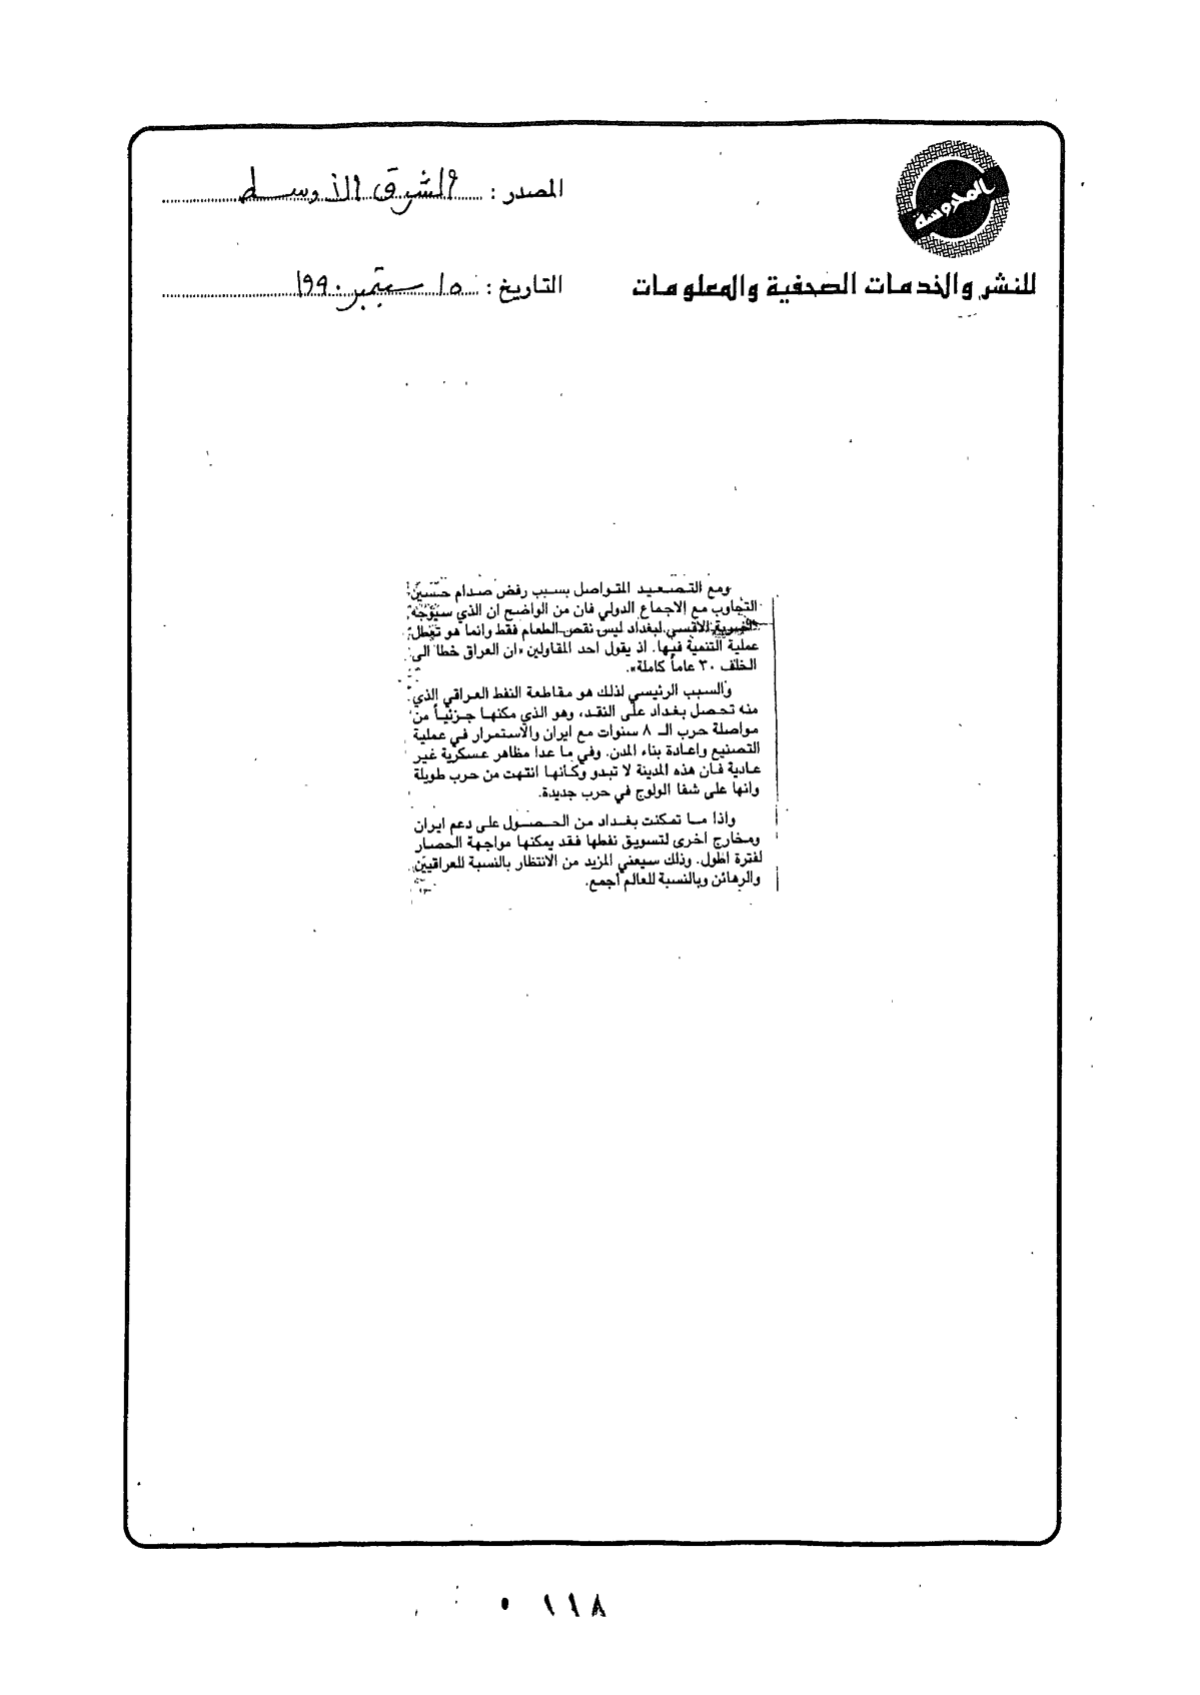 المحروسة
للنشر والخدمات الصحفية والمعلومات
المصدر : الشرق الأوسط
التاريخ : ١٥ سبتمبر ١٩٩٠
ومع التصعيد المتواصل بسبب رفض صدام حسين
التجاوب مع الاجماع الدولي فان من الواضح ان الذي سيوجه
الضربة الاقسى لبغداد ليس نقص الطعام فقط وانما هو تعطل
عملية التنمية فيها. اذ يقول احد المقاولين «ان العراق خطا الى
الخلف ٣٠ عاماً كاملة».
والسبب الرئيسي لذلك هو مقاطعة النفط العراقي الذي
منه تحصل بغداد على النقد، وهو الذي مكنها جزئياً من
مواصلة حرب الـ ٨ سنوات مع ايران والاستمرار في عملية
التصنيع واعادة بناء المدن. وفي ما عدا مظاهر عسكرية غير
عادية فان هذه المدينة لا تبدو وكأنها انتهت من حرب طويلة
وانها على شفا الولوج في حرب جديدة.
واذا ما تمكنت بغداد من الحصول على دعم ايران
ومخارج اخرى لتسويق نفطها فقد يمكنها مواجهة الحصار
لفترة اطول. وذلك سيعني المزيد من الانتظار بالنسبة للعراقيين
والرهائن وبالنسبة للعالم أجمع.
٠ ١١٨